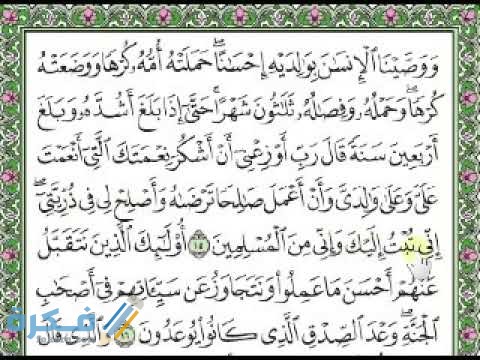 وَوَصَّيْنَا ٱلْإِنسَٰنَ بِوَٰلِدَيْهِ إِحْسَٰنًا ۖ حَمَلَتْهُ أُمُّهُۥ كُرْهًا وَوَضَعَتْهُ
كُرْهًا ۖ وَحَمْلُهُۥ وَفِصَٰلُهُۥ ثَلَٰثُونَ شَهْرًا ۚ حَتَّىٰٓ إِذَا بَلَغَ أَشُدَّهُۥ وَبَلَغَ
أَرْبَعِينَ سَنَةً قَالَ رَبِّ أَوْزِعْنِىٓ أَنْ أَشْكُرَ نِعْمَتَكَ ٱلَّتِىٓ أَنْعَمْتَ
عَلَىَّ وَعَلَىٰ وَٰلِدَىَّ وَأَنْ أَعْمَلَ صَٰلِحًا تَرْضَىٰهُ وَأَصْلِحْ لِى فِى ذُرِّيَّتِىٓ ۖ
إِنِّى تُبْتُ إِلَيْكَ وَإِنِّى مِنَ ٱلْمُسْلِمِينَ ١٥ أُو۟لَٰٓئِكَ ٱلَّذِينَ نَتَقَبَّلُ
عَنْهُمْ أَحْسَنَ مَا عَمِلُوا۟ وَنَتَجَاوَزُ عَن سَيِّـَٔاتِهِمْ فِىٓ أَصْحَٰبِ
ٱلْجَنَّةِ ۖ وَعْدَ ٱلصِّدْقِ ٱلَّذِى كَانُوا۟ يُوعَدُونَ ١٦ وَٱلَّذِى قَالَ
فكرة